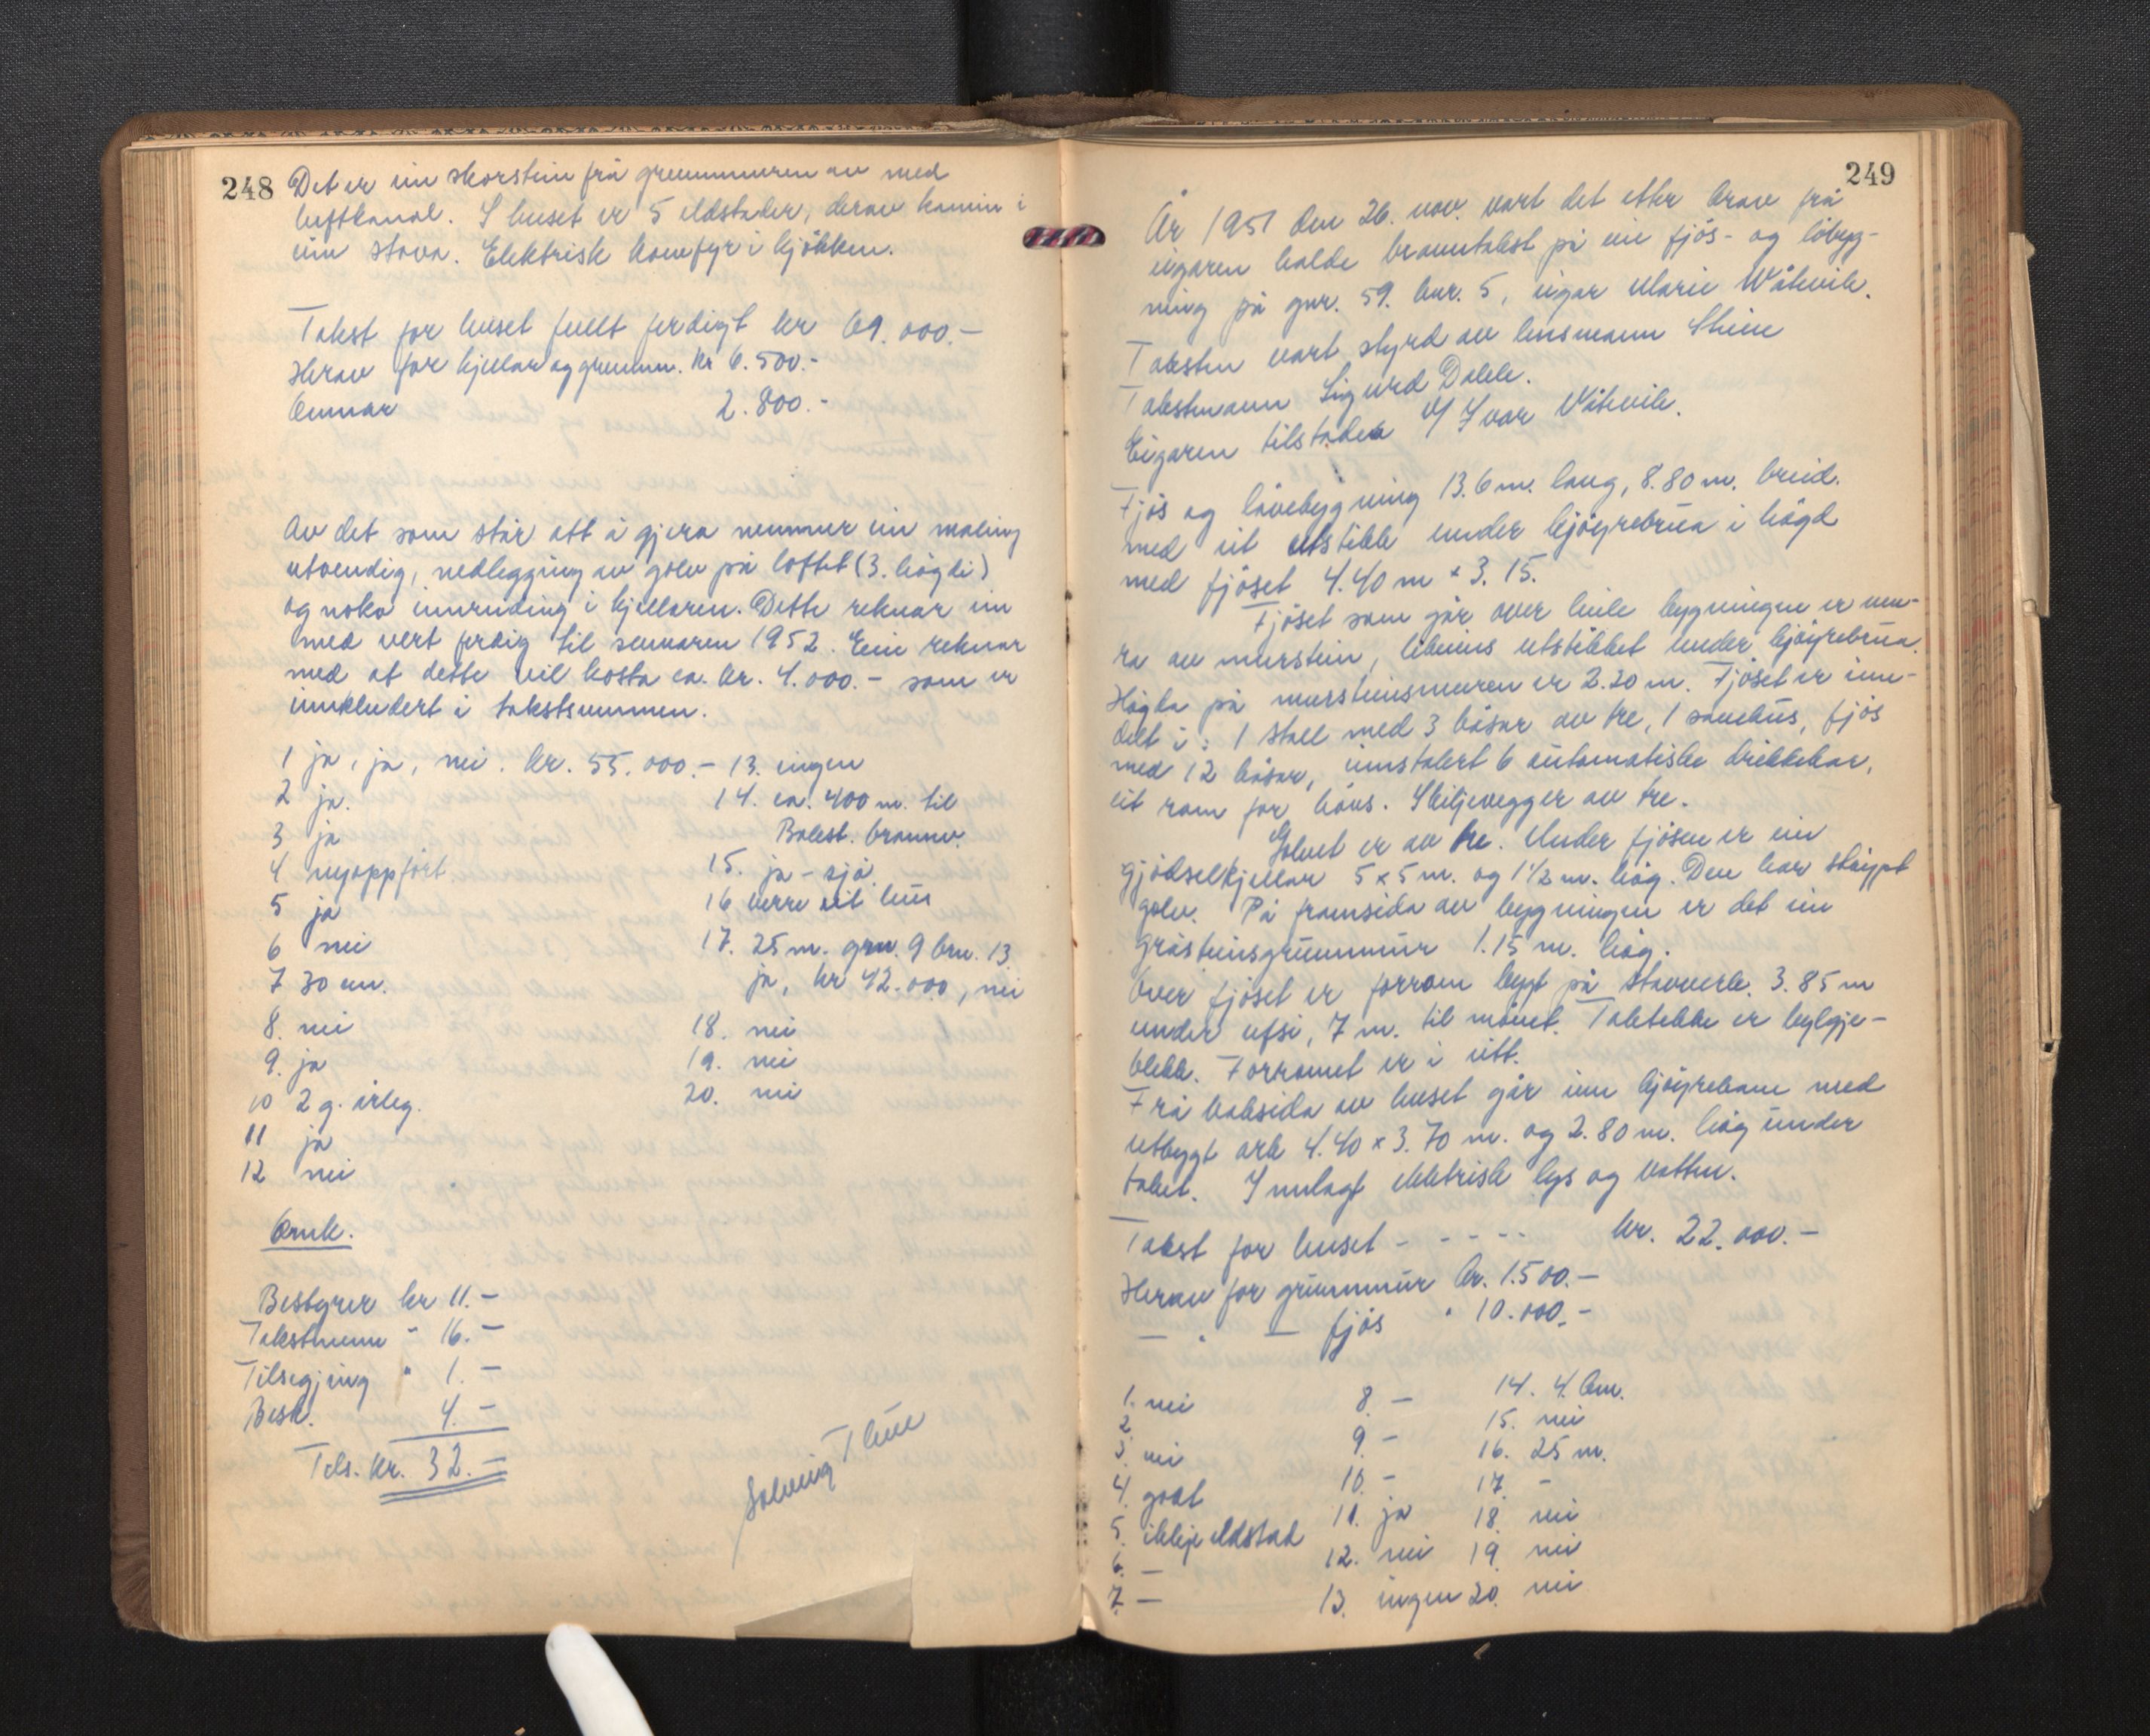 248
Det er ein skorstein frå grunnmuren av med
luftkanal. I huset er 5 eldstader, derav kamin i
ein stova. Elektrisk komfyr i kjökken.
Takst for huset fullt ferdigt kr 69.000.-
Herav for kjellar og grunnm. kr 6.500.-
Omnar 2.800.-
Av det som står att å gjera nemner ein maling
utvendig, nedlegging av golv på loftet (3. högdi)
og noko innreiding i kjellaren. Dette reknar ein
med vert ferdig til sumaren 1952. Ein reknar
med at dette vil kosta ca. kr. 4.000.- som er
innkludert i takstsummen.
1 ja, ja, nei. kr. 55.000.-
2 ja.
3 ja
4 nyoppfört
5 ja
6 nei
7 30 cm.
8. nei
9. ja
10 2 g. årleg.
11 ja
12 nei
13. ingen
14. ca. 400 m. til
Balest. brannv.
15. ja - sjö
16 verre eit hus
17. 25 m. gnr. 9 bnr. 13
ja, kr 42.000, nei
18. nei
19. nei
20. nei
Omk.
Bestyrer kr 11.-
Takstmenn " 16.-
Tilsegjing " 1.-
Besk. 4.-
Tils. kr. 32.-
Solveig
249
År 1951 den 26. nov. vart det etter krav frå
eigaren halde branntakst på ein fjös- og löbyg-
ning på gnr. 59. bnr. 5, eigar Marie Våtevik.
Taksten vart styrd av lensmann
Takstmann Sigurd Dale.
Eigaren tilstades v/ Ivar Våtevik.
Fjös og lövebygning 13.6 m. lang, 8.80 m. breid.
med eit utstikk under kjöyrebrua i högd
med fjöset 4.40 m x 3.15.
Fjöset som går over heile bygningen er mu-
ra av murstein, likeins utstikket under kjöyrebrua.
Högda på mursteinsmuren er 2.20 m. Fjöset er inn-
delt i: 1 stall med 3 båsar av tre, 1 sauehus, fjös
med 12 båsar, innstalert 6 automatiske drikkekar,
eit rom for höns. Skiljevegger av tre.
Golvet er av tre. Under fjösen er ein
gjödselkjellar 5 x 5 m. og 1 1/2 m. hög. Den har stöypt
golv. På framsida av bygningen er det ein
gråsteinsgrunnmur 1.15 m. hög.
Over fjöset er forrom bygt på stavverk. 3.85 m
under ufsi, 7 m. til mönet. Taktekke er bylgje-
blekk. Forromet er i eitt.
Frå baksida av huset går inn kjöyrebane med
utbygt ark 4.40 x 3.70 m. og 2.80 m. hög under
taket. Innlagt elektrisk lys og vatten.
Takst for huset - - - - - kr. 22.000.-
Herav for grunnmur kr. 1.500.-
— " — fjös " 10.000.-
1. nei
2.
3. nei
4. godt
5. ikkje eldstad
6. —
7. —
8. —
9. -
10. -
11. ja
12. nei
13. ingen
14. 4 km.
15. nei
16. 25 m.
17. -
18. nei
19. nei
20. nei